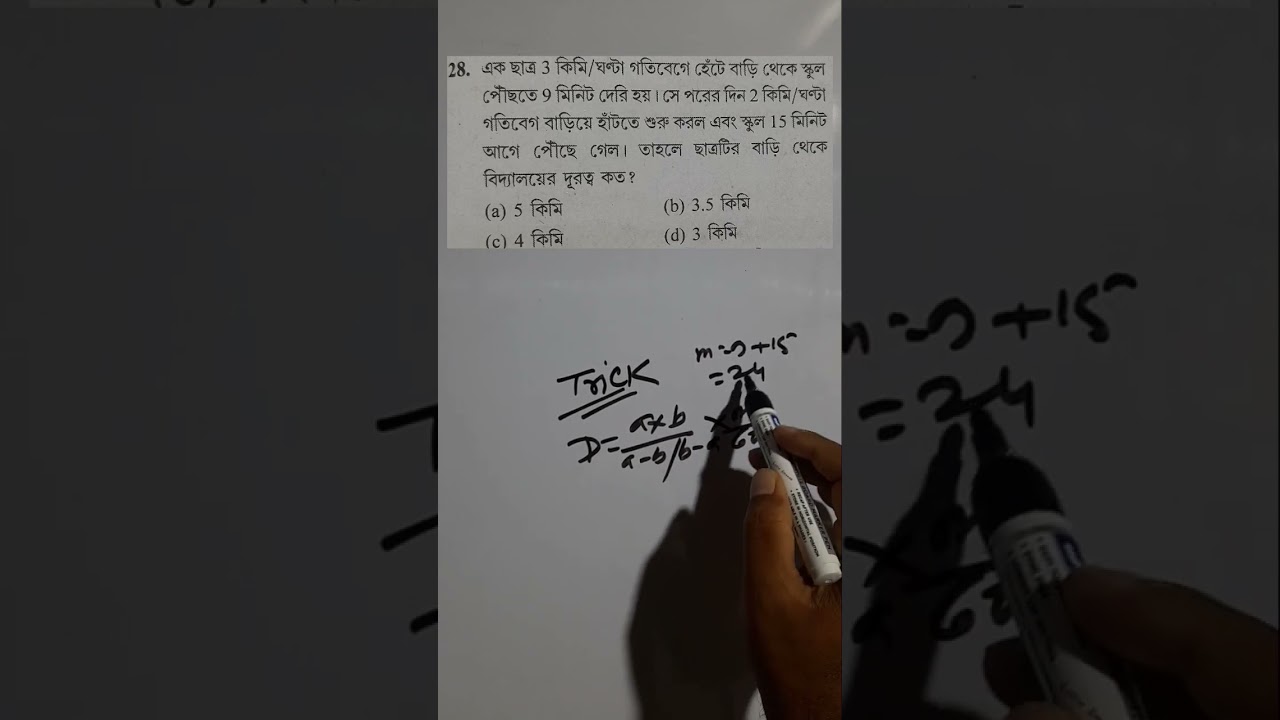 28. এক ছাত্র 3 কিমি/ঘণ্টা গতিবেগে হেঁটে বাড়ি থেকে স্কুল
পৌঁছতে 9 মিনিট দেরি হয়। সে পরের দিন 2 কিমি/ঘণ্টা
গতিবেগ বাড়িয়ে হাঁটতে শুরু করল এবং স্কুল 15 মিনিট
আগে পৌঁছে গেল। তাহলে ছাত্রটির বাড়ি থেকে
বিদ্যালয়ের দূরত্ব কত?
(a) 5 কিমি (b) 3.5 কিমি
(c) 4 কিমি (d) 3 কিমি
m = 9 + 15
= 24
Trick
a × b
D =
a - b / b - a